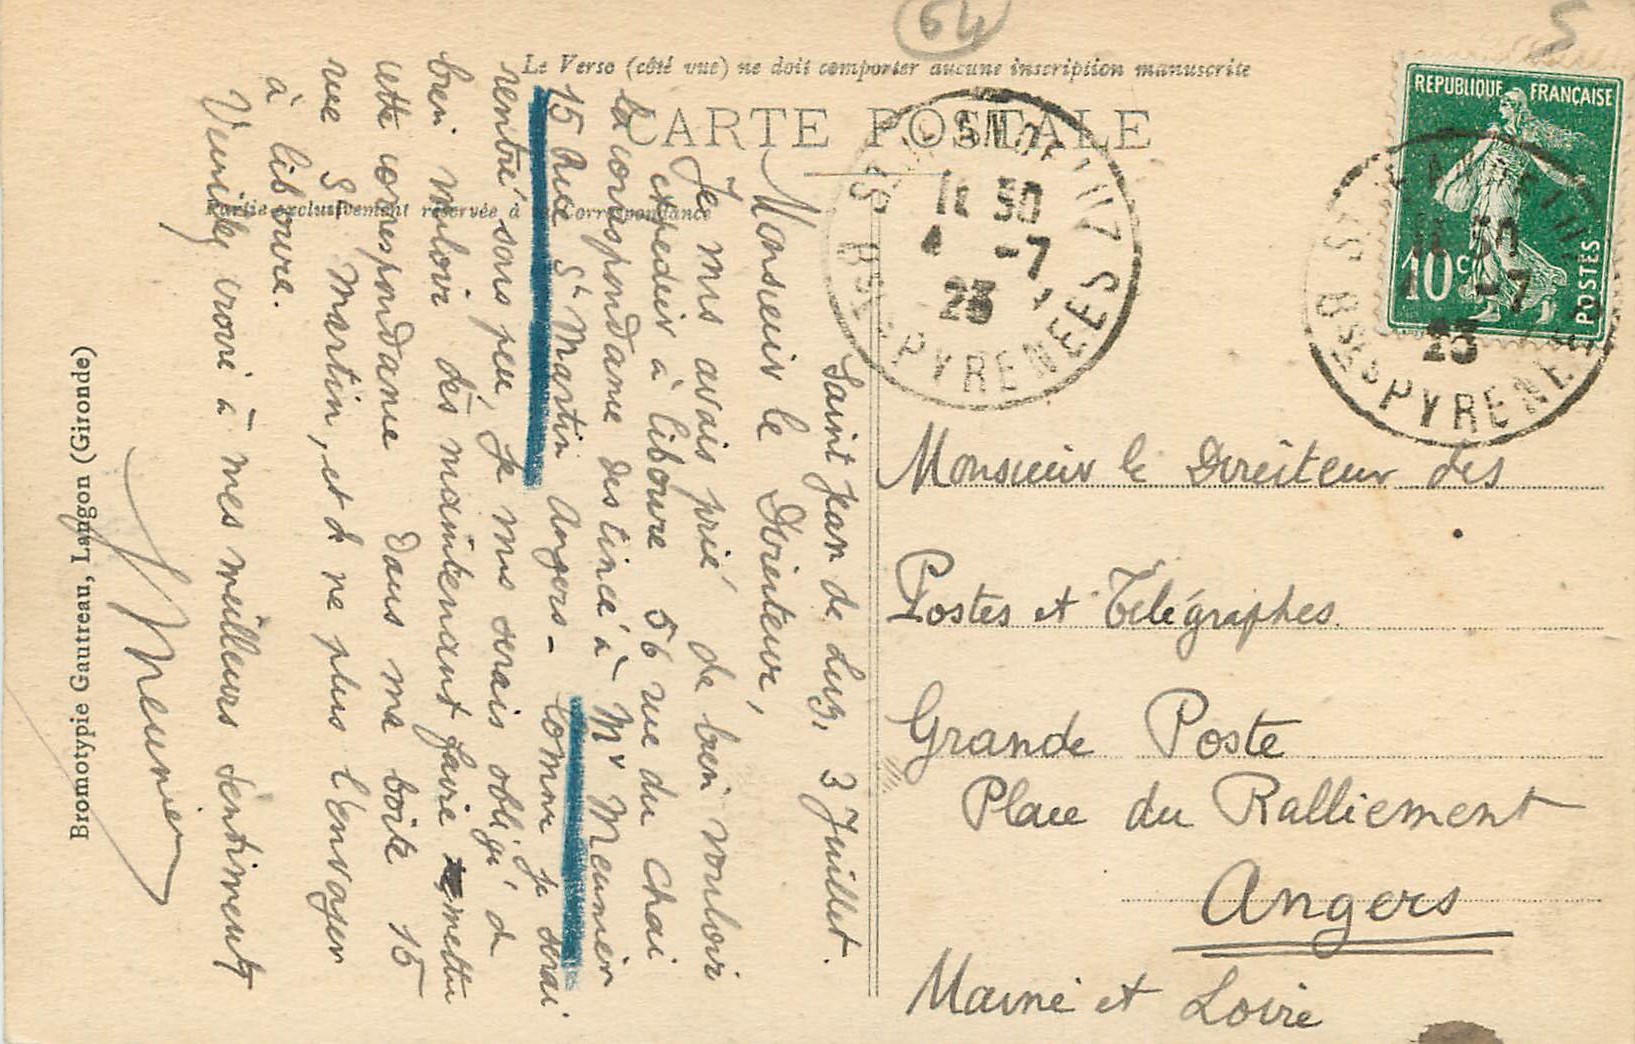 64
S
Le Verso (côté vue) ne doit comporter aucune inscription manuscrite
CARTE POSTALE
Partie exclusivement réservée à la Correspondance
REPUBLIQUE FRANÇAISE
10c
POSTES
11 30
4 -7
23
Bses PYRENEES
11 30
-7
23
Bses PYRENEES
Saint Jean de Luz, 3 Juillet.
Monsieur le Directeur,
Je vous avais prié de bien vouloir
expédier à Libourne 56 rue du Chai
la correspondance destinée à Mr Meunier
15 Rue St Martin Angers - Comme je serai
rentré sous peu, je vous serais obligé de
bien vouloir dès maintenant faire remettre
cette correspondance dans ma boîte 15
rue St Martin, et de ne plus l'envoyer
à Libourne.
Veuillez croire à mes meilleurs sentiments
Meunier
Monsieur le Directeur des
Postes et Télégraphes
Grande Poste
Place du Ralliement
Angers
Maine et Loire
Bromotypie Gautreau, Langon (Gironde)